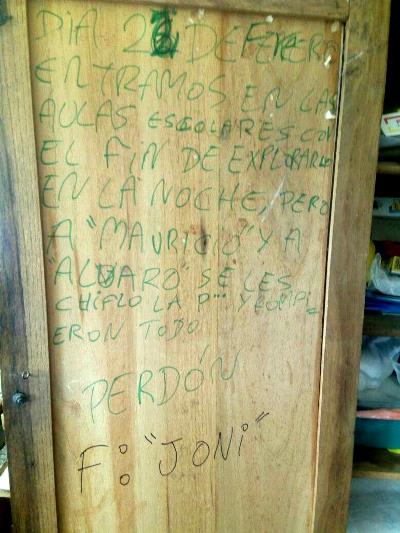 DIA 26 DE FEBRERO
ENTRAMOS EN LAS
AULAS ESCOLARES CON
EL FIN DE EXPLORARLO
EN LA NOCHE, PERO
A "MAURICIO" Y A
"ALVARO" SE LES
CHIFLO LA P... Y ROMPI_
ERON TODO
PERDÓN
F: "JONI"